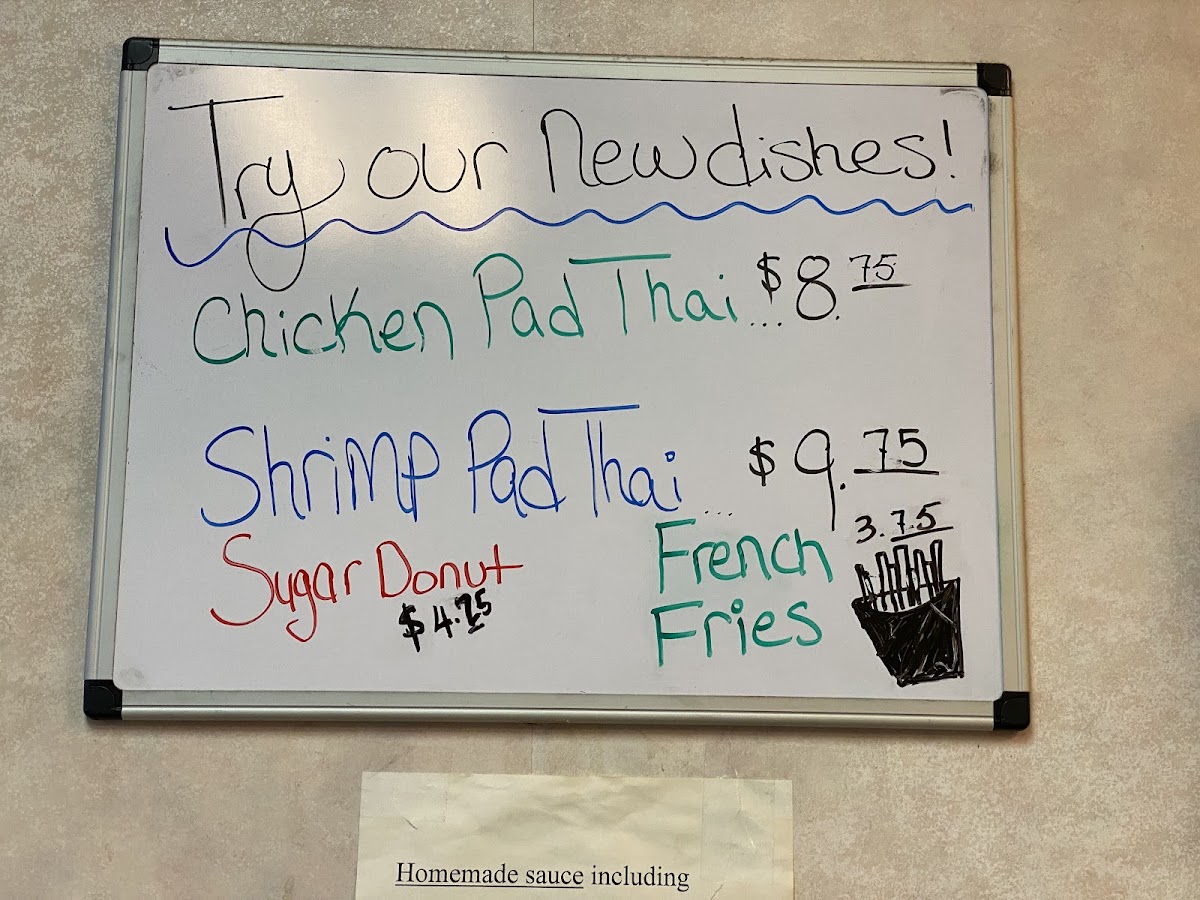 Try our New dishes!
Chicken Pad Thai ... $8.75
Shrimp Pad Thai .... $9.75
Sugar Donut
$4.25
French
Fries
3.75
Homemade sauce including